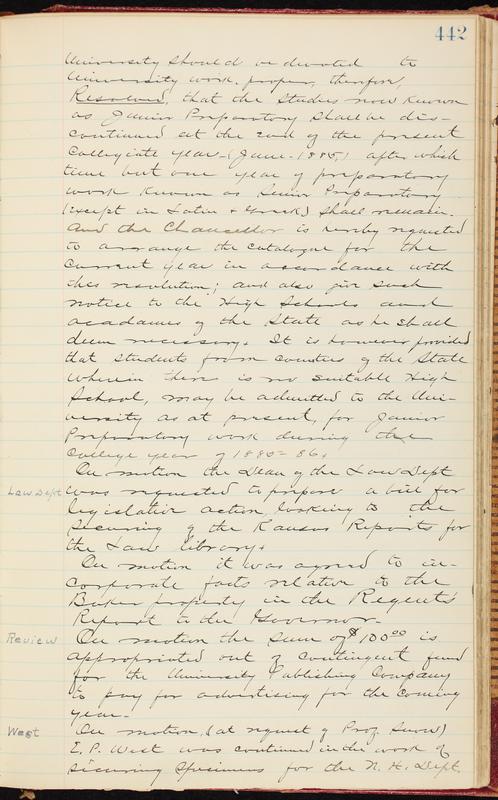 442
University should be devoted to
University work, proper, therefore,
Resolved, that the studies now known
as Junior Preparatory shall be dis-
continued at the end of the present
Collegiate year - (June - 1885) after which
time but one year of preparatory
work known as Senior Preparatory
(except in Latin & Greek) shall remain.
And the Chancellor is hereby requested
to arrange the catalogue for the
current year in accordance with
this resolution; and also give such
notice to the High Schools and
academies of the State as he shall
deem necessary. It is however provided
that students from counties of the State
wherein there is no suitable High
School, may be admitted to the Uni-
versity as at present, for Junior
Preparatory work during the
College year of 1885-86.
On motion the Dean of the Law Dept
Law Dept was requested to prepare a bill for
legislative action, looking to the
securing of the Kansas Reports for
the Law library.
On motion it was agreed to in-
corporate facts relative to the
Baker property in the Regents'
Report to the Governor.
Review On motion the sum of $100.00 is
appropriated out of contingent fund
for the University Publishing Company
to pay for advertising for the coming
year.
West On motion, (at request of Prof. Snow)
E. P. West was continued in the work of
securing specimens for the N. H. Dept.